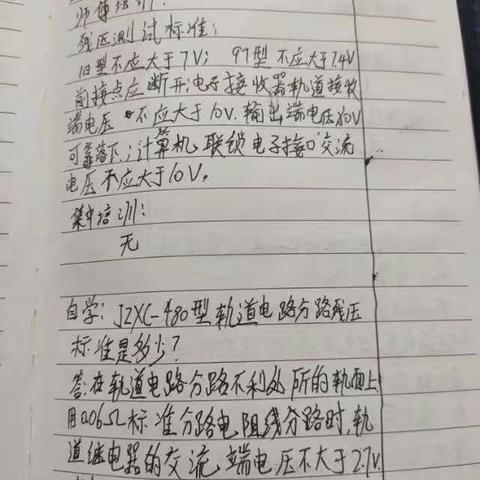 师傅培训:
残压测试标准:
旧型不应大于7V; 97型不应大于7.4V
前接点应断开;电子接收器轨道接收
端电压不应大于10V.输出端电压为0V
可靠落下;计算机联锁电子接口交流
电压不应大于10V。
集中培训:
无
自学: JZXC-480型轨道电路分路残压
标准是多少?
答:在轨道电路分路不利处所的轨面上
用0.06Ω标准分路电阻线分路时,轨
道继电器的交流端电压不大于2.7V.